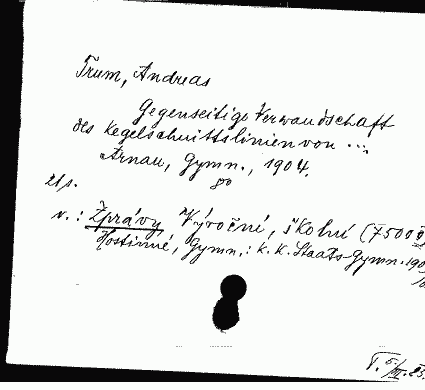 Trum, Andreas
Gegenseitige Verwandschaft
des Kegelschnittslinien von ...
Arnau, Gymn., 1904.
8°
v.: Zprávy Výroční, školní (7500
Hostinné, Gymn.: K. K. Staats-Gymn. 190